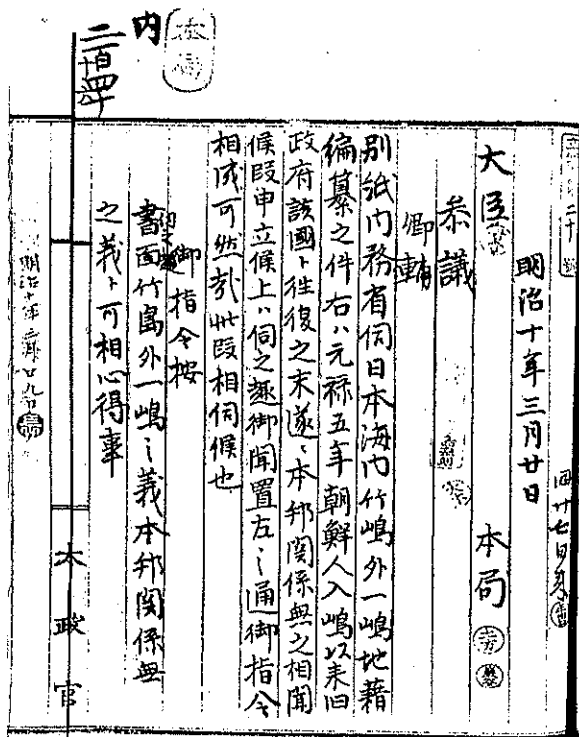 明治十年三月廿日
大臣 本局
参議
卿輔
別紙内務省伺日本海内竹嶋外一嶋地籍
編纂之件右ハ元禄五年朝鮮人入嶋以来旧
政府該國ト往復之末遂ニ本邦関係無之相聞
候段申立候上ハ伺之趣御聞置左之通御指令
相成可然哉此段相伺候也
御指令按
書面竹島外一嶋之義本邦関係無
之義ト可相心得事
明治十年三月廿九日
太政官
内